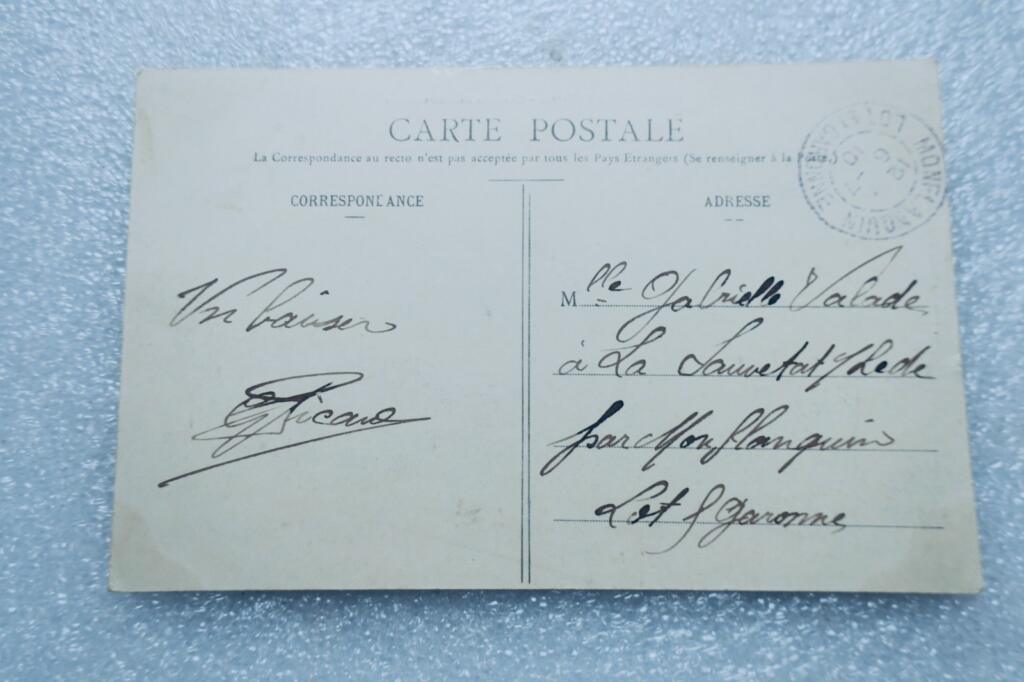 CARTE POSTALE
La Correspondance au recto n'est pas acceptée par tous les Pays Etrangers (Se renseigner à la Poste.)
CORRESPONDANCE
Un baiser
GRicard
ADRESSE
Mlle Gabrielle Valade
à La Sauvetat s/Lede
par Monflanquin
Lot & Garonne
MONFLANQUIN
LOT-ET-GARONNE